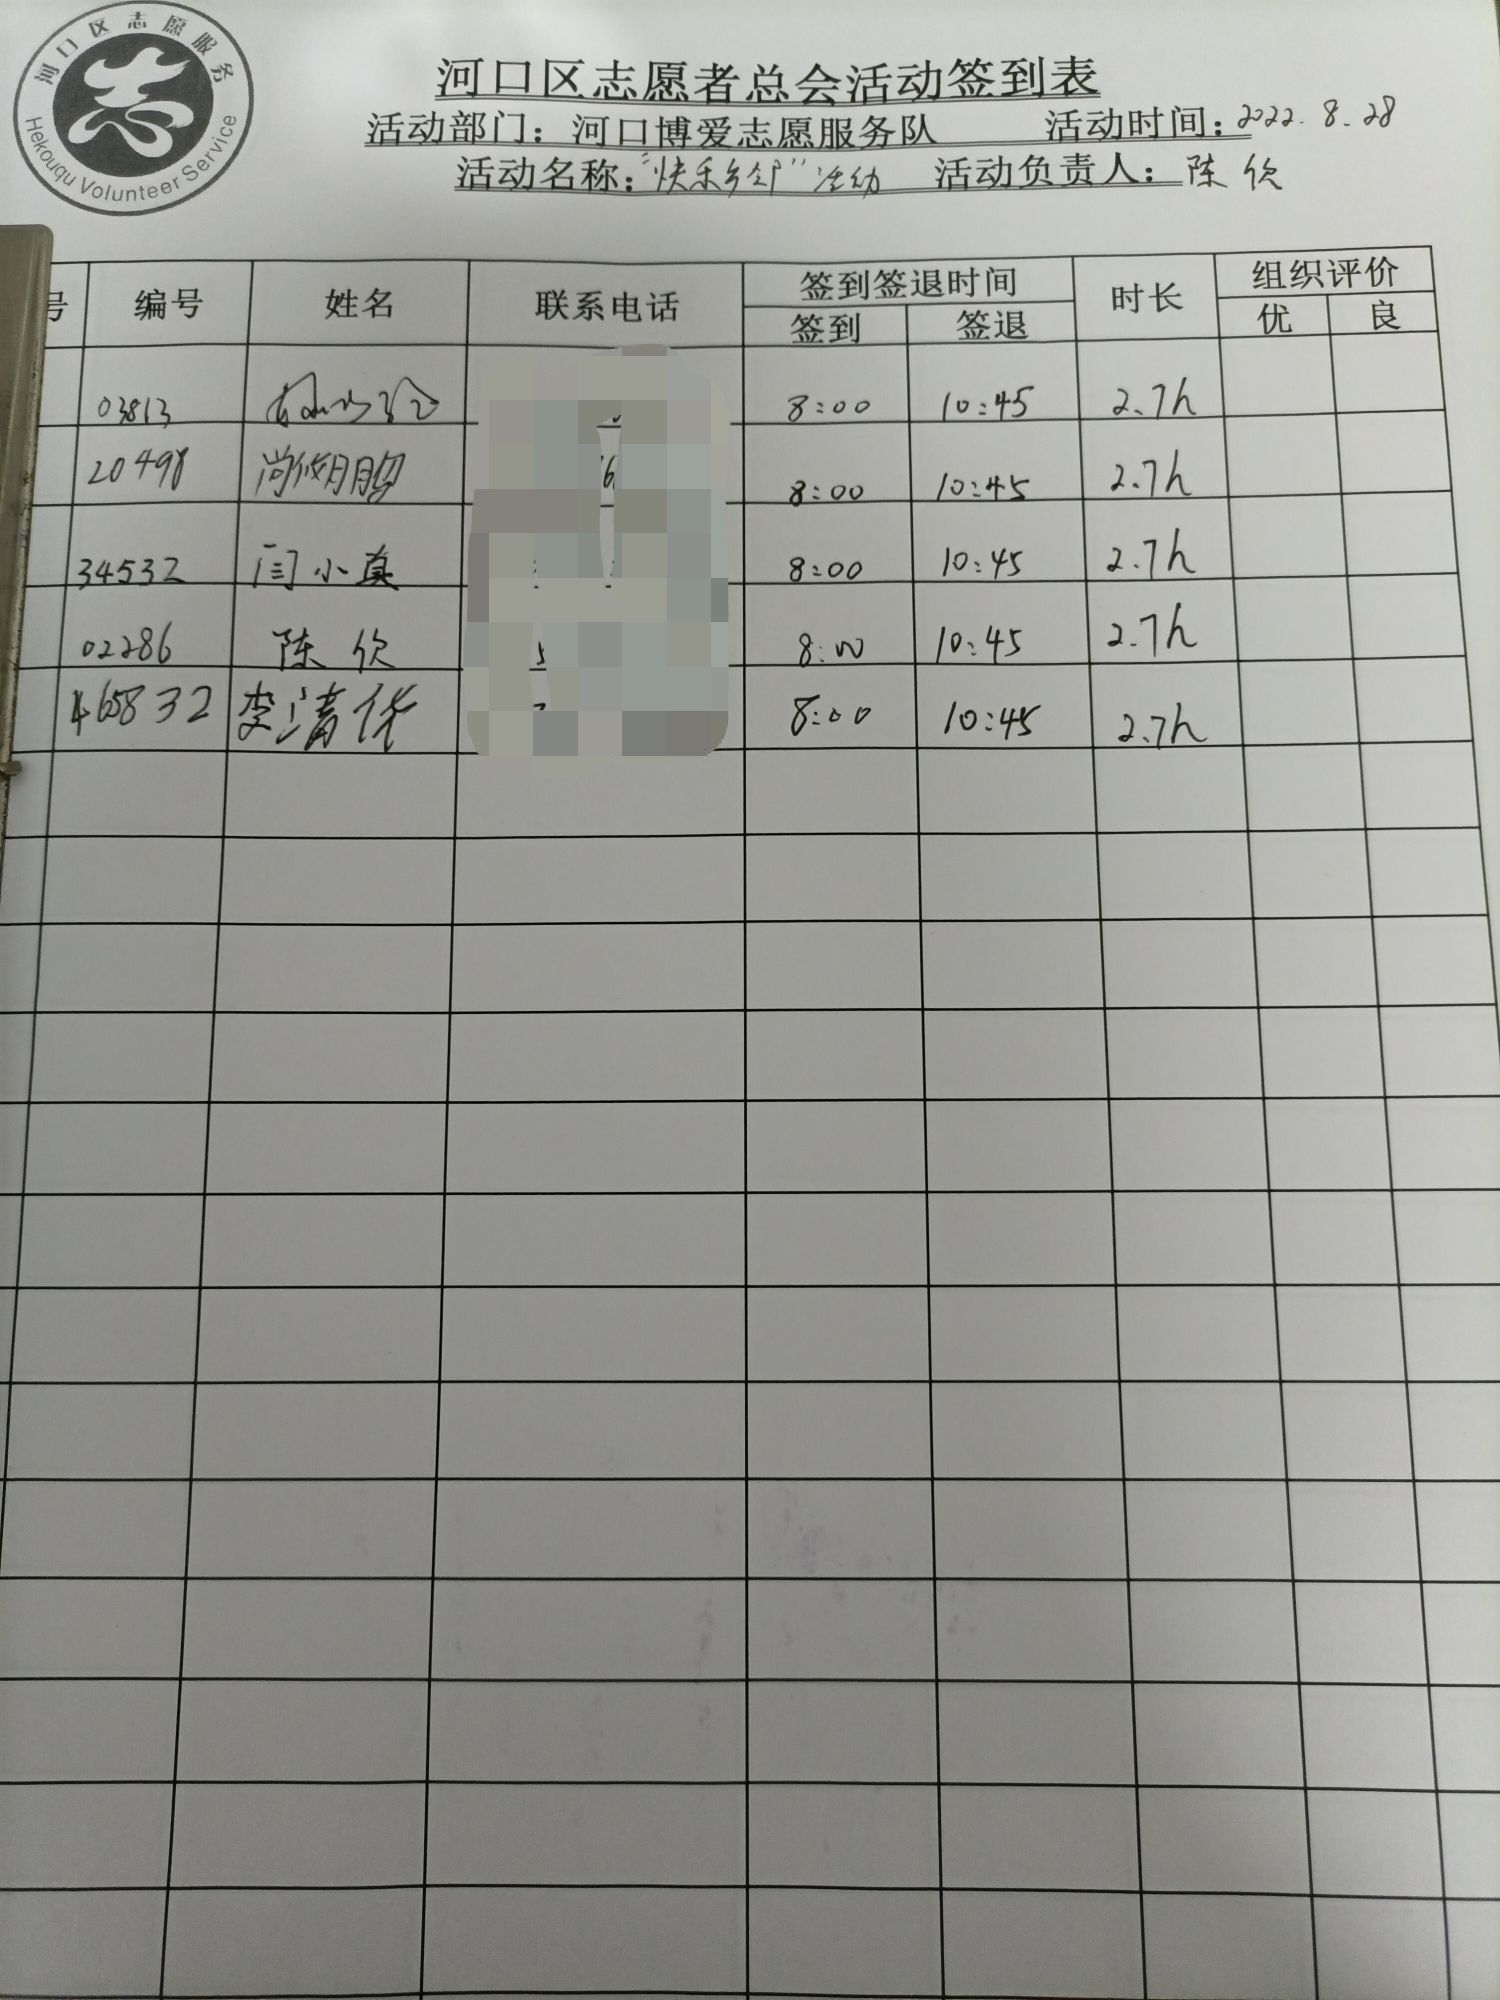 河口区志愿服务
Hekouqu Volunteer Service
河口区志愿者总会活动签到表
活动部门：河口博爱志愿服务队 活动时间：2022.8.28
活动名称：“快乐乡邻”活动 活动负责人：陈欣
号 编号 姓名 联系电话 签到签退时间 时长 组织评价
签到 签退 优 良
03813 8:00 10:45 2.7h
20498 8:00 10:45 2.7h
34532 闫小真 8:00 10:45 2.7h
02286 陈欣 8:00 10:45 2.7h
李清华 8:00 10:45 2.7h